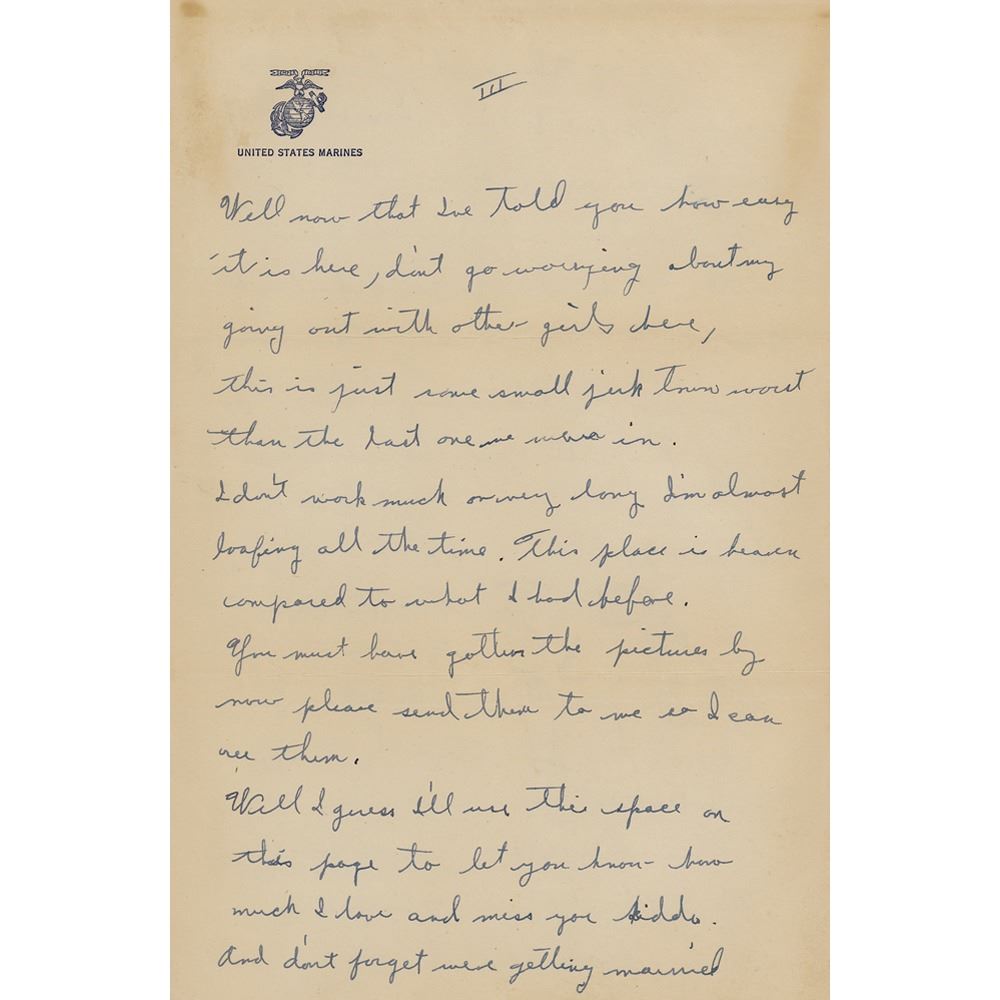 III
UNITED STATES MARINES
Well now that I've told you how easy
it is here, don't go worrying about my
going out with other girls here,
this is just some small jerk town worst
than the last one we were in.
I don't work much or very long I'm almost
loafing all the time. This place is heaven
compared to what I had before.
You must have gotten the pictures by
now please send them to me so I can
see them.
Well I guess I'll use this space on
this page to let you know how
much I love and miss you kiddo.
And don't forget were getting married